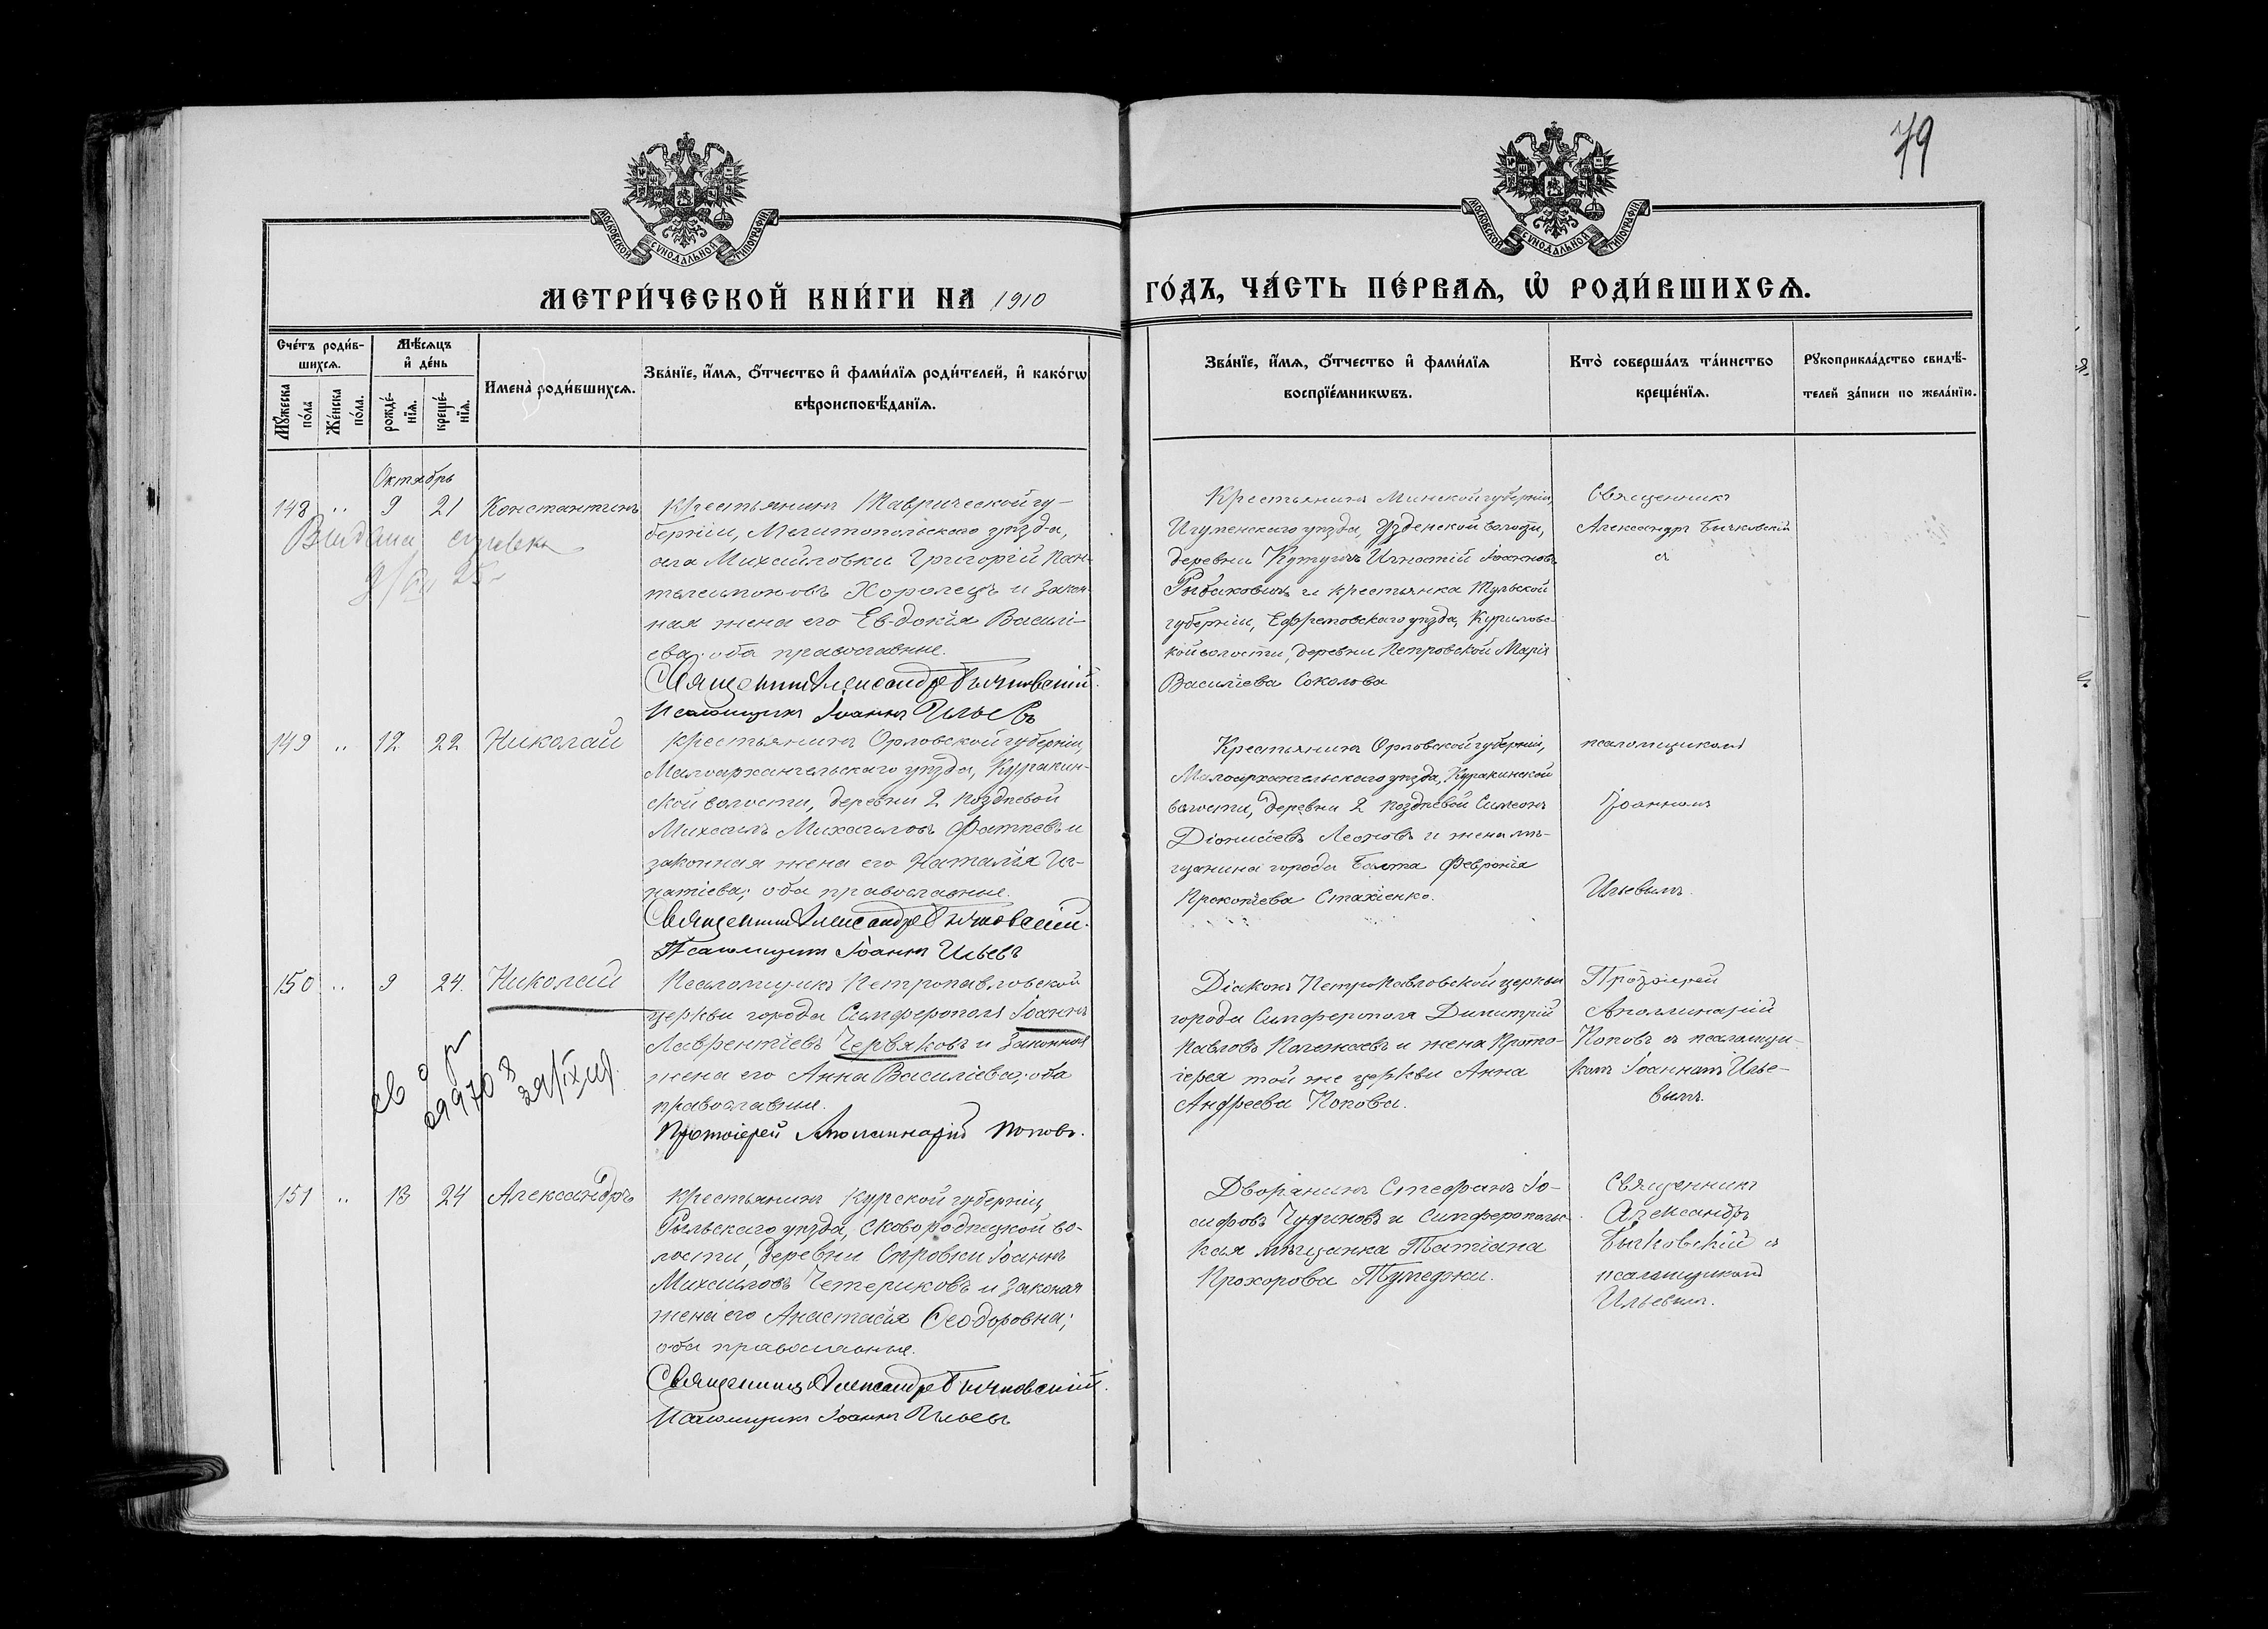 79
МОСКОВСКОЙ СУНОДАЛЬНОЙ ТИПОГРАФІИ
МОСКОВСКОЙ СУНОДАЛЬНОЙ ТИПОГРАФІИ
МЕТРИ́ЧЕСКОЙ КНИ́ГИ НА 1910
ГО́ДЪ, ЧА́СТЬ ПЕ́РВАѦ, Ѡ҆ РОДИ́ВШИХСѦ.
Сче́тъ роди́в-
шихсѧ.
Мꙋ́жеска по́ла
Же́нска по́ла.
Мѣ́сѧцъ
и҆ де́нь
рожде́-
нїѧ.
креще́-
нїѧ.
Имена̀ роди́вшихсѧ.
Зва́нїе, и҆́мѧ, ѻ҆́тчество и҆ фами́лїѧ роди́телей, и҆ како́гѡ
вѣроисповѣ́данїѧ.
Зва́нїе, и҆́мѧ, ѻ҆́тчество и҆ фами́лїѧ
воспрїе́мникѡвъ.
Кто̀ соверша́лъ та́инство
креще́нїѧ.
Рꙋкоприкла́дство свидѣ́-
телей за́писи по жела́нїю.
Октябрь
148 " 9 21 Константинъ
Выдана справка
Крестьянинъ Таврической гу-
берніи, Мелитопольскаго уѣзда,
села Михайловки Григорій Пан-
телеимоновъ Хоролецъ и закон-
ная жена его Евдокія Василі-
ева; оба православные.
Священникъ Александръ Бычковскій.
Псаломщикъ Іоаннъ Ильевъ
Крестьянинъ Минской губерніи,
Игуменскаго уѣзда, Узденской волости,
деревни Игнатій Іоанновъ
Рыбаковичъ и крестьянка Тульской
губерніи, Ефремовскаго уѣзда, Куриловс-
кой волости, деревни Петровской Марія
Василіева Соколова
Священникъ
Александръ Бычковскій
съ
149 " 12 22 Николай
Крестьянинъ Орловской губерніи,
Малоархангельскаго уѣзда, Куракин-
ской волости, деревни 2 Поздѣевой
Михаилъ Михаиловъ Фатѣевъ и
законная жена его Наталія Иг-
натіева; оба православные.
Священникъ Александръ Бычковскій.
Псаломщикъ Іоаннъ Ильевъ
Крестьянинъ Орловской губерніи,
Малоархангельскаго уѣзда, Куракинской
волости, деревни 2 Поздѣевой Симеонъ
Діонисіевъ Леоновъ и жена мѣ-
щанина города Балта Февронія
Прокопіева Стахіенко.
псаломщикомъ
Іоанномъ
Ильевымъ.
150 " 9 24. Николай
29970 8
Псаломщикъ Петропавловской
церкви города Симферополя Іоаннъ
Лаврентіевъ Червяковъ и законная
жена его Анна Василіева; оба
православные.
Протоіерей Аполлинарій Поповъ.
Діаконъ Петропавловской церкви
города Симферополя Димитрій
Павловъ и жена Прото-
іерея той же церкви Анна
Андреева Попова.
Протоіерей
Аполлинарій
Поповъ съ псаломщи-
комъ Іоанномъ Илье-
вымъ.
151 " 13 24 Александръ
Крестьянинъ Курской губерніи,
Рыльскаго уѣзда, Сковороднецкой во-
лости, деревни Іоаннъ
Михаиловъ Четериковъ и законная
жена его Анастасія Ѳеодоровна;
оба православные.
Священникъ Александръ Бычковскій.
Псаломщикъ Іоаннъ Ильевъ
Дворянинъ Стефанъ Іо-
сифовъ Чудиновъ и Симферопольс-
кая мѣщанка Татіана
Прохорова
Священникъ
Александръ
Бычковскій съ
псаломщикомъ
Ильевымъ.